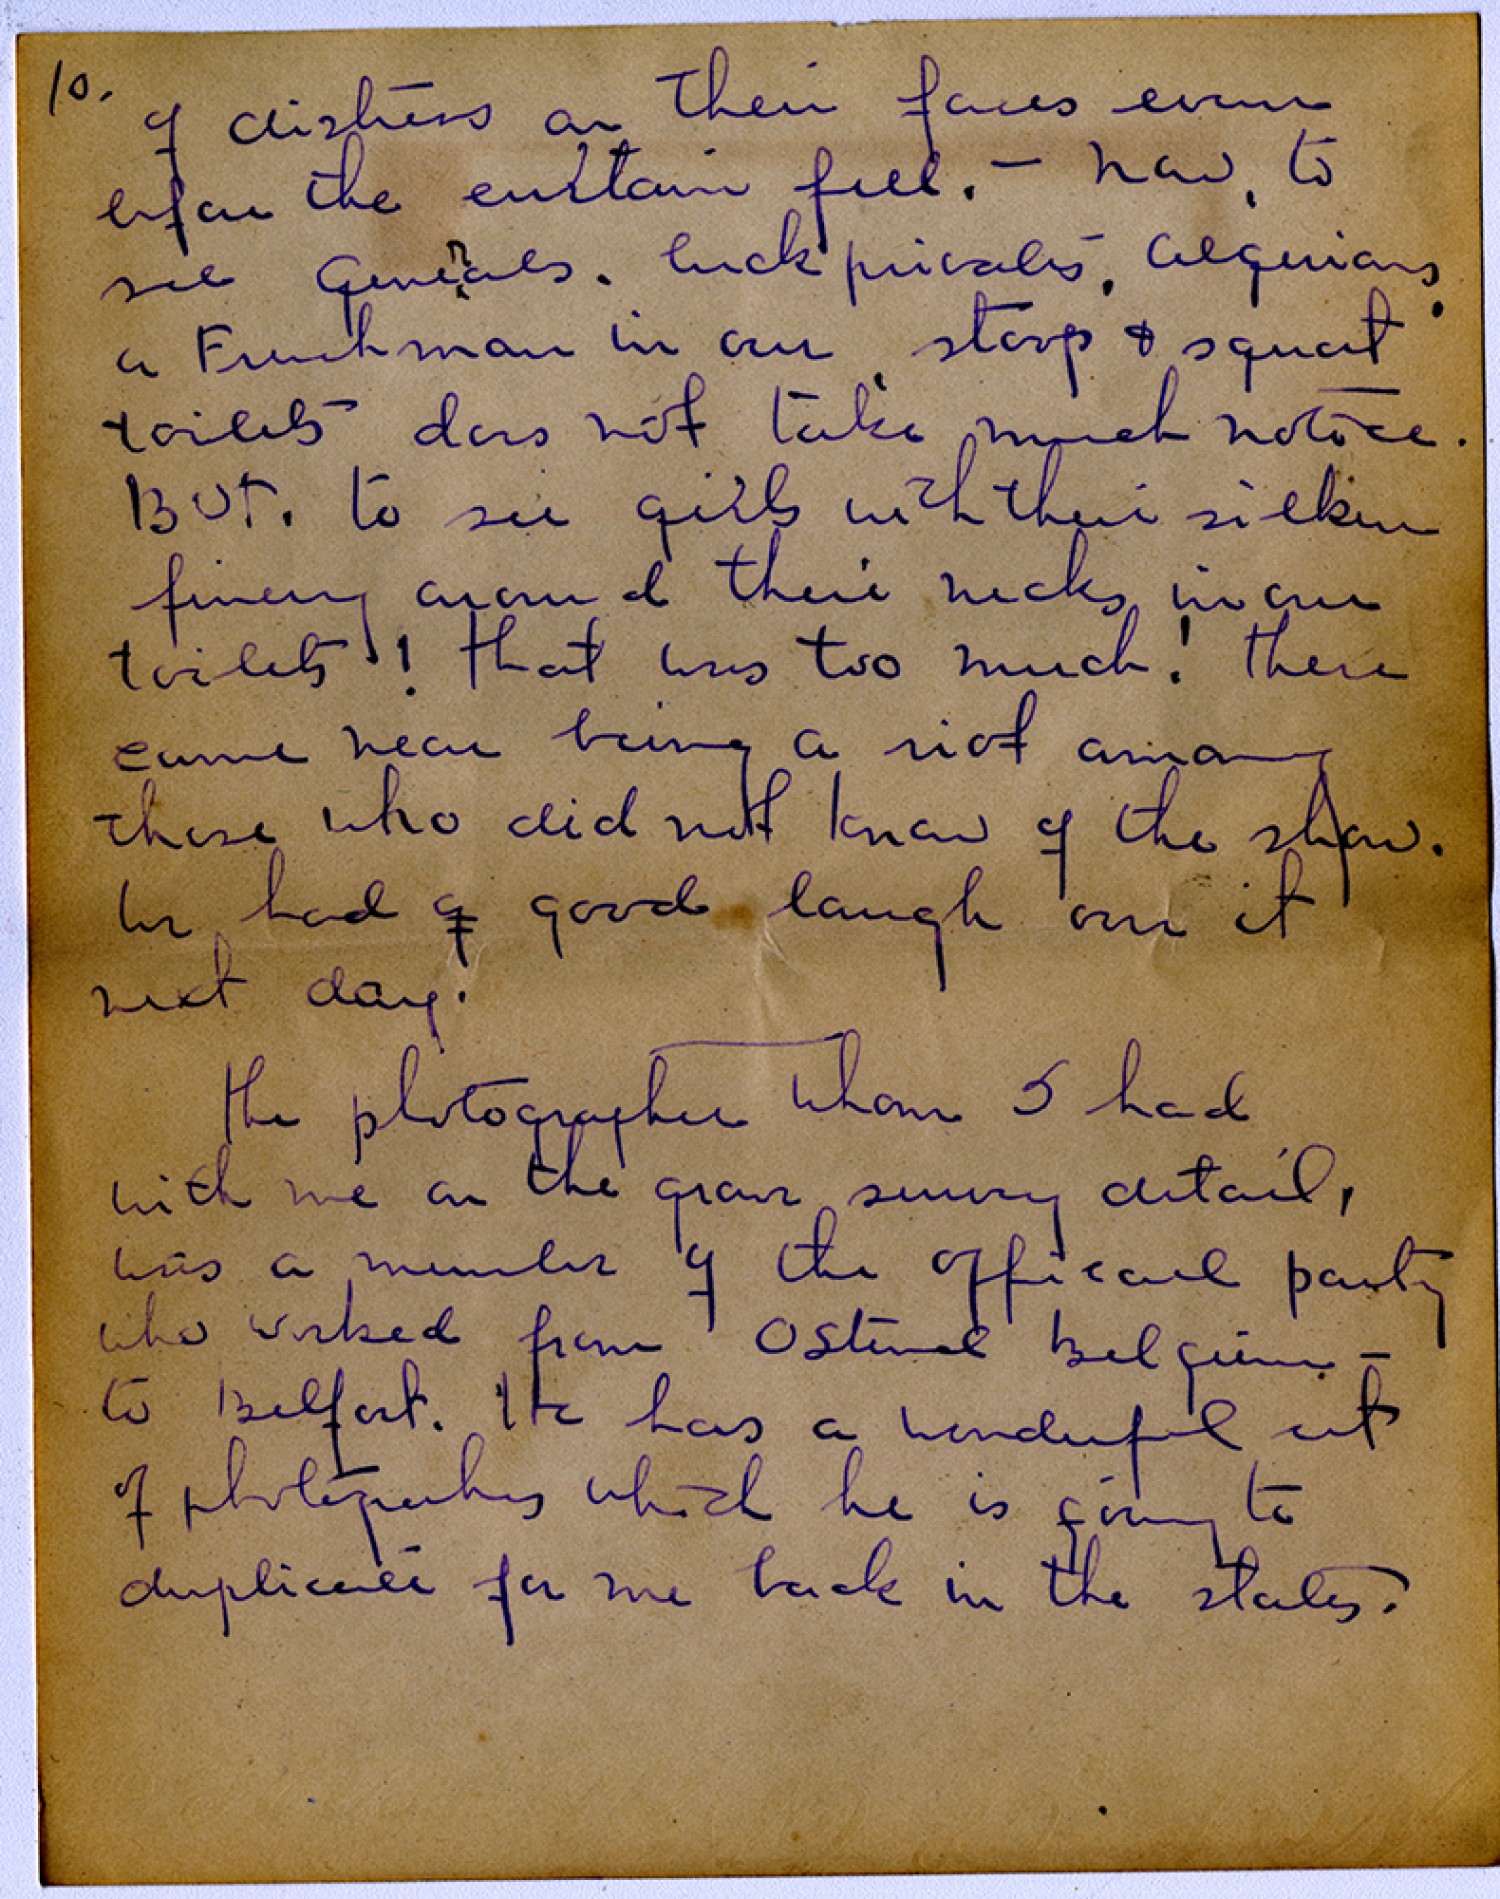 10.
of distress on their faces even
before the curtain fell. — Now, to
see Generals. buck privates, Algerians,
a Frenchman in our stoop & squat
toilets does not take much notice.
BUT. to see girls with their silken
finery around their necks in our
toilets! that was too much! there
came near being a riot among
those who did not know of the show.
We had a good laugh over it
next day!
The photographer whom I had
with me on the grave survey detail,
was a member of the official party
who worked from Ostend Belgium —
to Belfort. He has a wonderful set
of photographs which he is going to
duplicate for me back in the states.